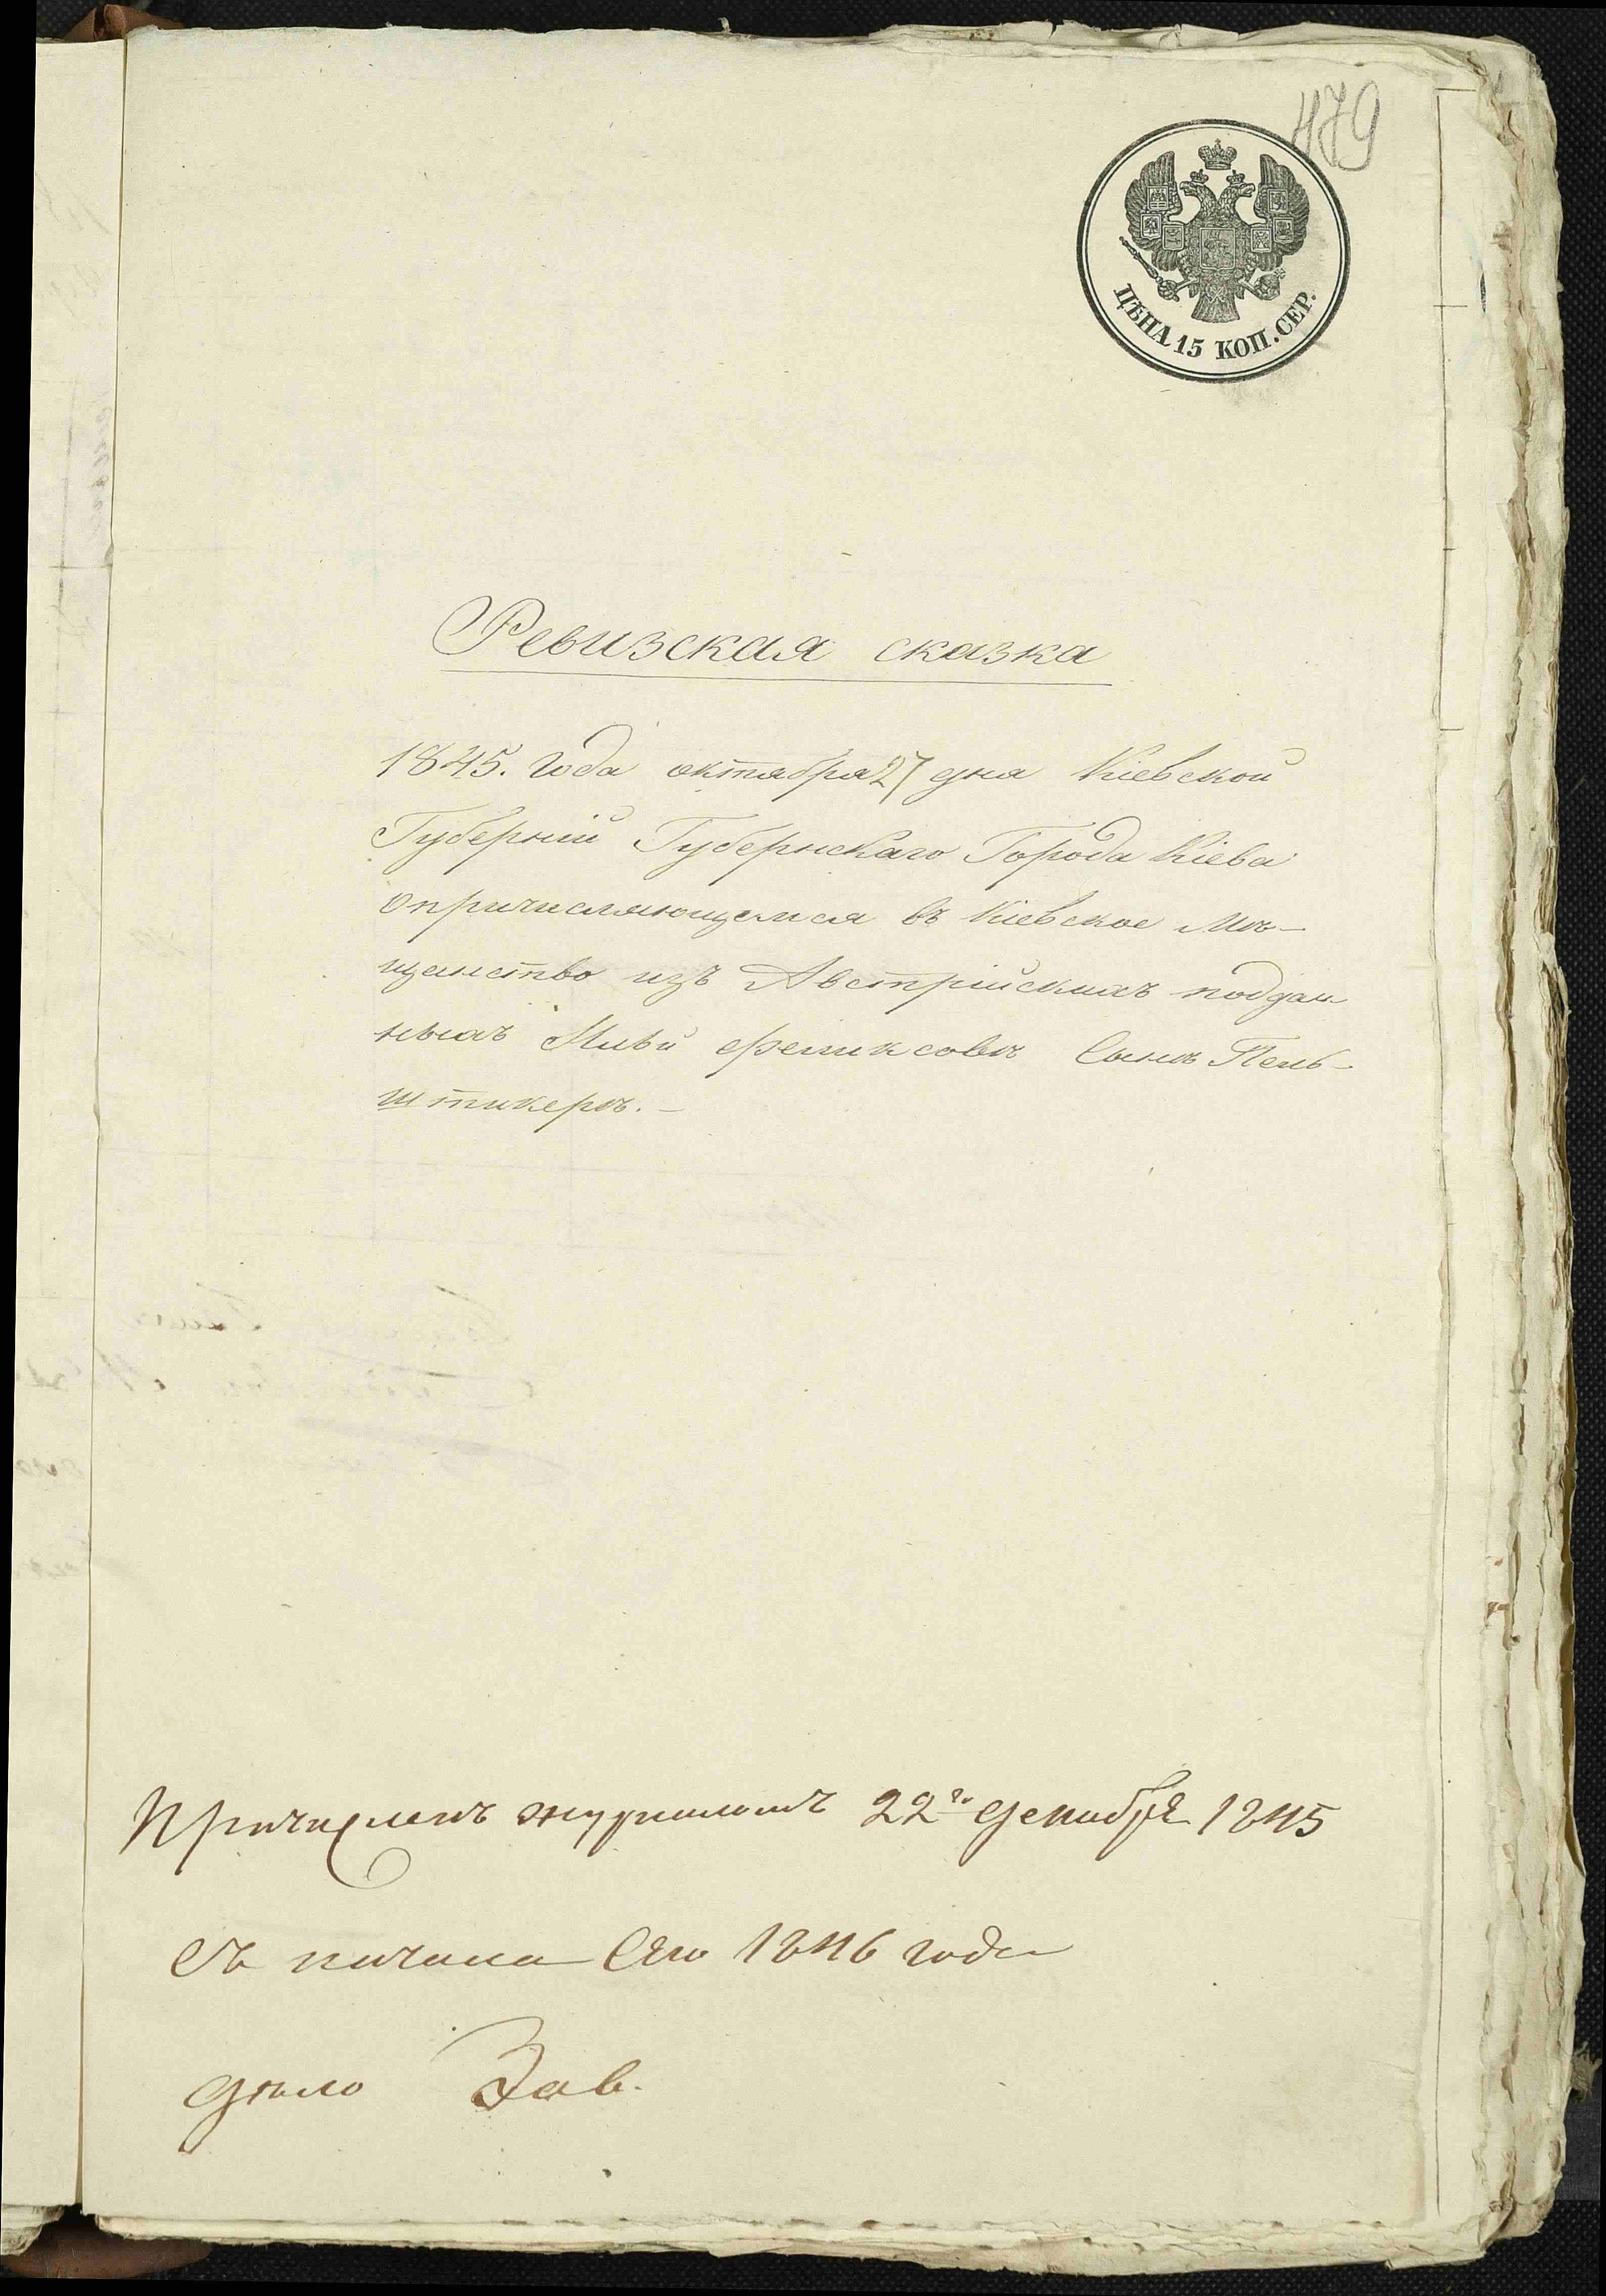 479
ЦѢНА 15 КОП. СЕР.
Ревизская сказка
1845. года октября 27 дня Кіевской
Губерніи Губернскаго Города Кіева
о причисляющемся въ Кіевское Мѣ-
щанство изъ Австрійскихъ поддан
ныхъ Феликсовѣ Сынѣ Пель-
штикерѣ.-
Причисленъ журналомъ 22го декабря 1845
съ начала 1846 года
дѣло